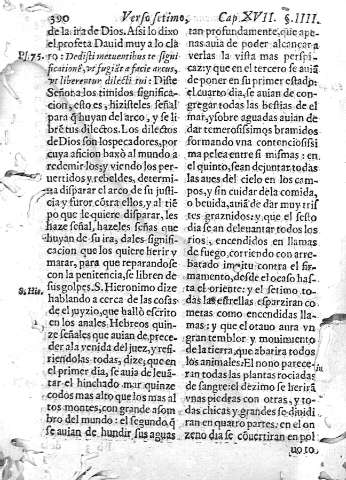 390 Verso setimo, Cap. XVII. §. IIII.
de la ira de Dios. Assi lo dixo
el profeta Dauid muy a lo cla
Psl. 75. ro: Dedisti metuentibus te signi
ficationē, vt fugiāt a facie arcus,
vt liberentur dilecti tui: Diste
Señor a los timidos significa-
cion, esto es, hizisteles señal
para q̃ huyan del arco, y se li
brē tus dilectos. Los dilectos
de Dios son los pecadores, por
cuya aficion baxò al mundo a
redemirlos; y viendo los per-
uertidos y rebeldes, determi-
na disparar el arco de su justi-
cia y furor contra ellos, y al tiē
po que le quiere disparar, les
haze señal, hazeles señas que
huyan de su ira, dales signifi-
cacion que los quiere herir y
matar, para que reparandose
con la penitencia, se libren de
S. Hie. sus golpes. S. Hieronimo dize
hablando a cerca de las cosas
del juyzio, que hallò escrito
en los anales Hebreos quin-
ze señales que auian de prece-
der a la venida del juez, y refi-
riendolas todas, dize, que en
el primer dia, se auia de leuā-
tar el hinchado mar quinze
codos mas alto que los mas al
tos montes, con grande asom
bro del mundo: el segundo, q̃
se auian de hundir sus aguas
tan profundamente, que ape-
nas auia de poder alcançar a
verlas la vista mas perspi-
caz: y que en el tercero se auiā
de poner en su primer estado:
el cuarto dia, se auian de con-
gregar todas las bestias de el
mar, y sobre aguadas auian de
dar temerosissimos bramidos
formando vna contenciosissi
ma pelea entre si mismas: en
el quinto, sean de juntar todas
las aues del cielo en los cam-
pos, y sin cuidar de la comida,
o beuida, auiā de dar muy tris
tes graznidos: y que el sesto
dia se an de leuantar todos los
rios, encendidos en llamas
de fuego, corriendo con arre-
batado impitu contra el fir-
mamento, desde el ocaso has-
ta el oriente: y el setimo to-
das las estrellas esparziran co
metas como encendidas lla-
mas: y que el otauo aura vn
gran temblor y mouimento
de la tierra, que abatira todos
los animales. El nono parece-
ran todas las plantas rociadas
de sangre: el dezimo se herirā
vnas piedras con otras, y to-
das chicas y grandes se diuidi
ran en quatro partes: en el on
zeno dia se cōuertiran en pol
uo to